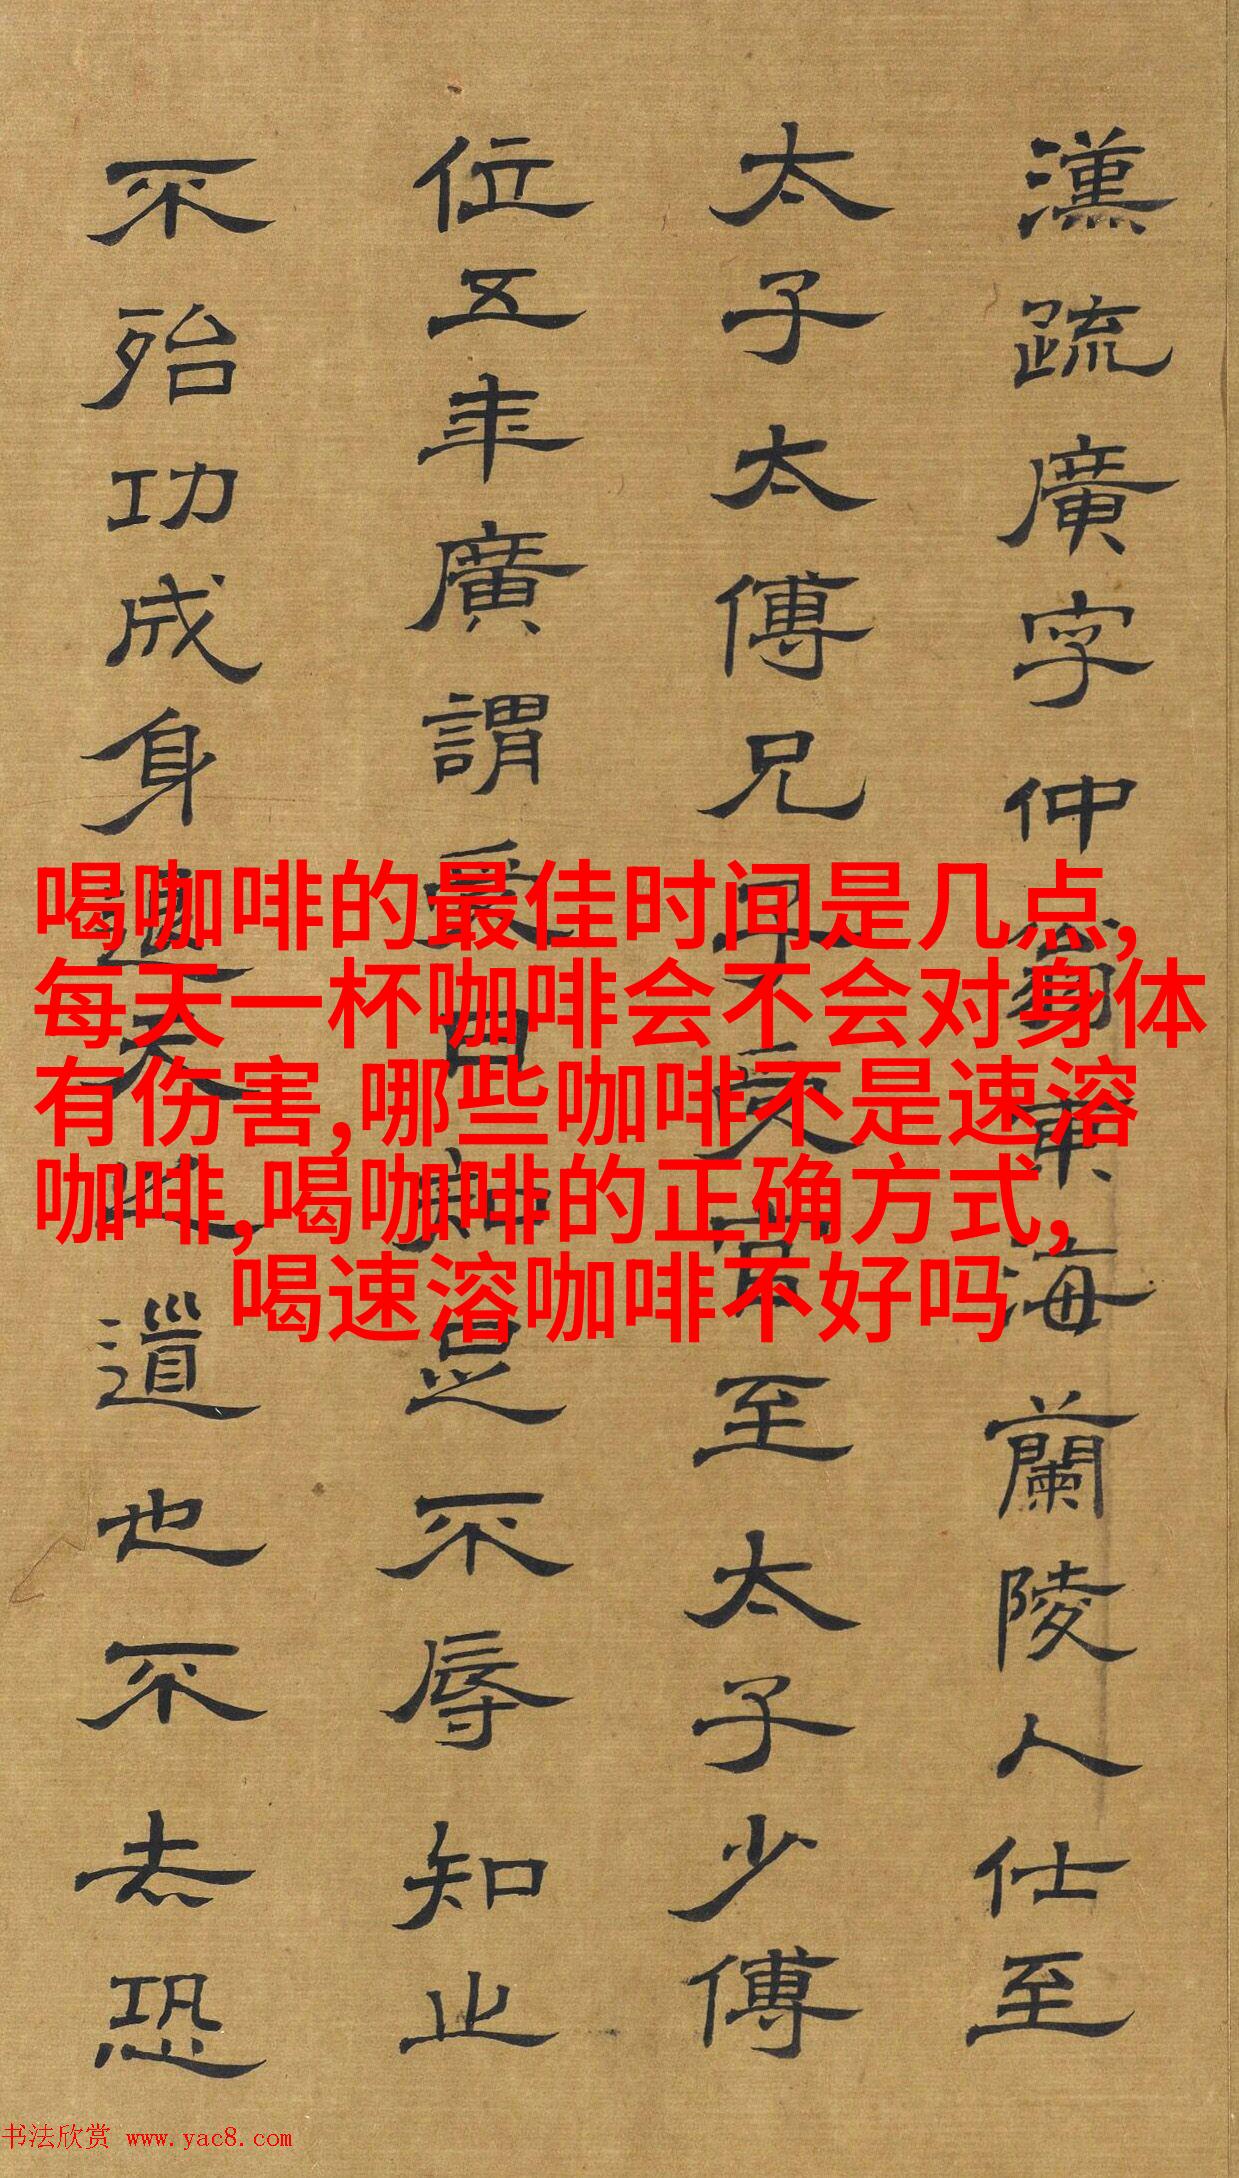 漢疏廣字仲翁東海蘭陵人仕至
太子太傅兄子受官至太子少傅
位五年廣謂受曰知足不辱知止
不殆功成身退天之道也不去恐
喝咖啡的最佳时间是几点,
每天一杯咖啡会不会对身体
有伤害,哪些咖啡不是速溶
咖啡,喝咖啡的正确方式,
喝速溶咖啡不好吗
书法欣赏 www.yac8.com